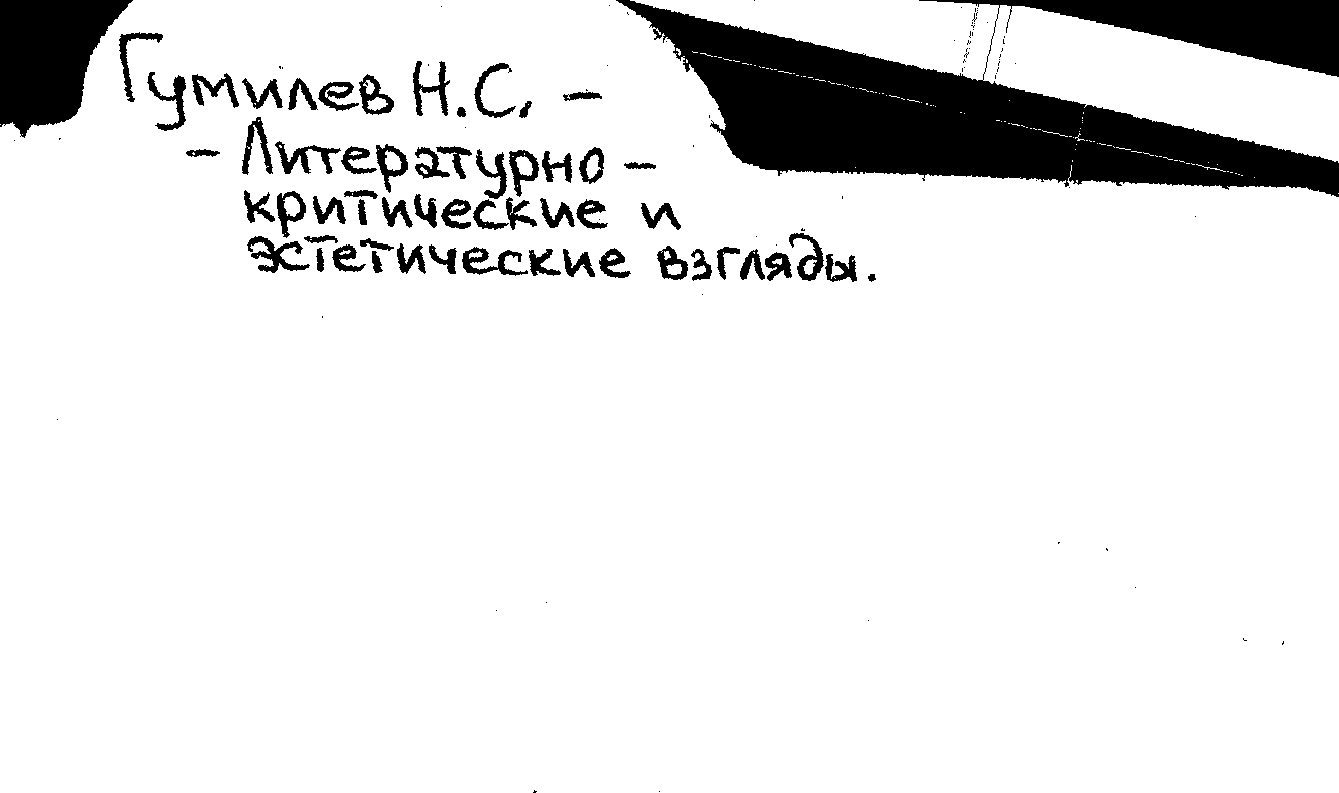 Гумилев Н.С. –
– Литературно –
критические и
эстетические взгляды.